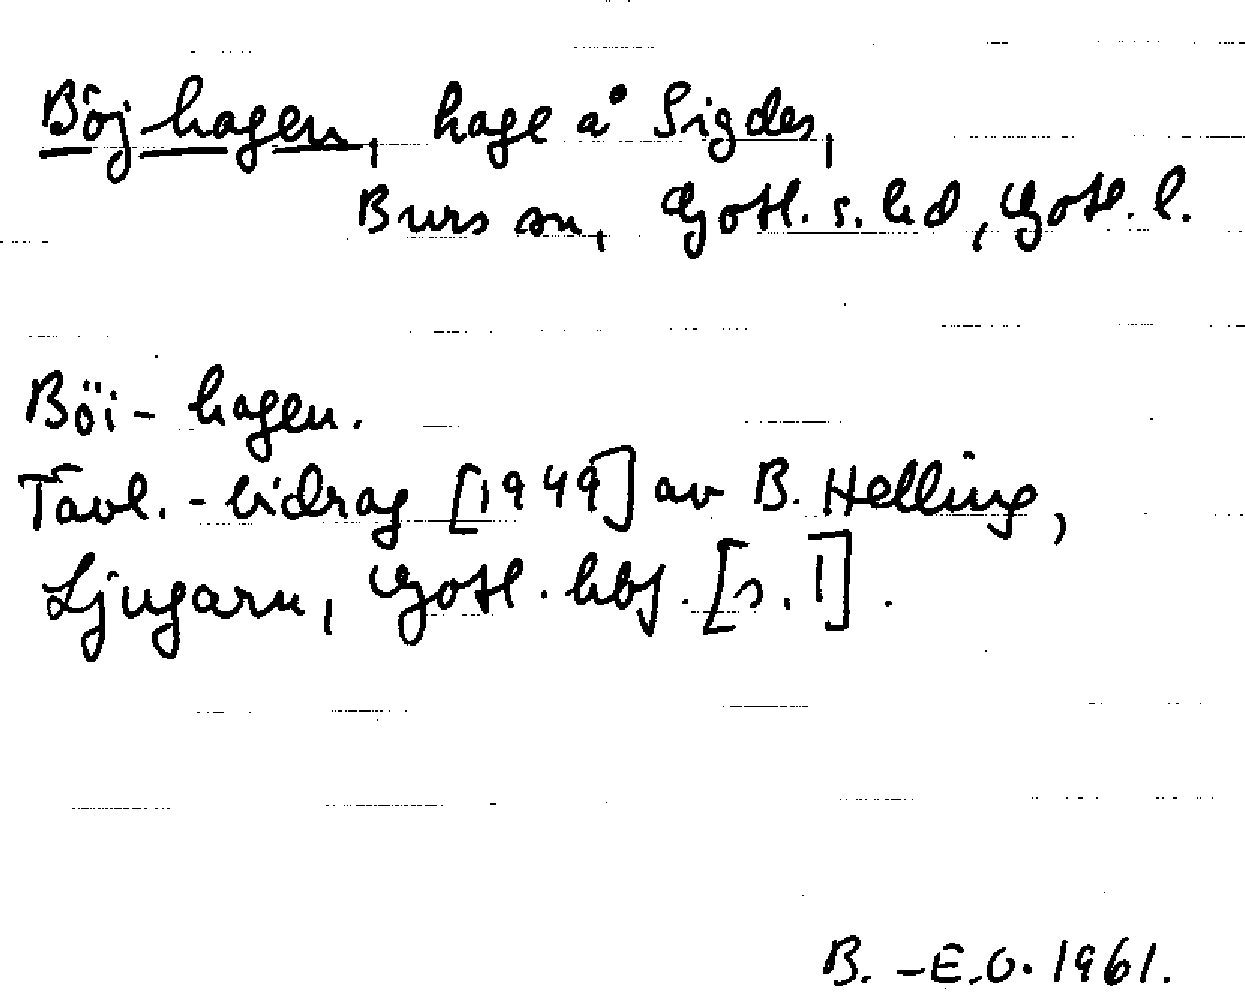 Böj-hagen, hage å Sigdes,
Burs sn, Gotl. s. hd, Gotl. l.
Böi-hagen.
Tävl.-bidrag [1949] av B. Helling,
Ljugarn, Gotl. hbf. [s. 1].
B.-E.O. 1961.